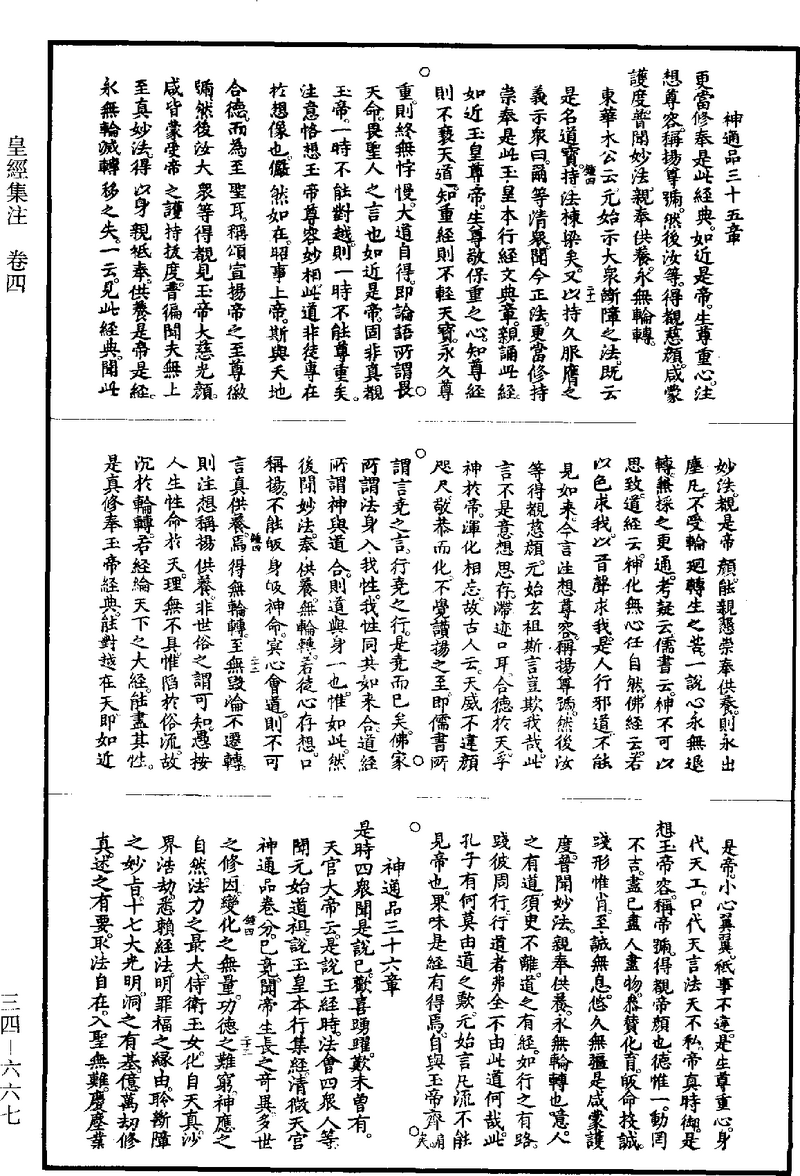 皇經集注　卷四
三四—六六七
神通品三十五章
更當修奉是此經典。如近是帝。生尊重心。注
想尊容。稱揚尊號。然後汝等。得覩慈顏。咸蒙
護度。普聞妙法。親奉供養。永無輪轉。
東華木公云。元始示大衆斷障之法。既云
是名道寶。持法棟梁矣。又以持久服膺之
義示衆曰。爾等清衆。聞今正法。更當修持
崇奉是此玉皇本行經文典章。親誦此經。
如近玉皇尊帝。生尊敬保重之心。知尊經
則不褻天道。知重經則不輕天寶。永久尊
重。則終無悖慢。大道自得。即論語所謂畏
天命。畏聖人之言也。如近是帝。固非真覩
玉帝。一時不能對越。則一時不能尊重矣。
注意恪想玉帝尊容妙相。此道非徒專在
於想像也。儼然如在。昭事上帝。斯與天地
合德。而為至聖耳。稱頌宣揚帝之至尊徽
號。然後汝大衆等。得覩見玉帝大慈光顏。
咸皆蒙受帝之護持拔度。普徧聞夫無上
至真妙法。得以身親祇奉。供養是帝是經。
永無輪滅轉移之失。一云。見此經典。聞此
妙法。覩是帝顏。能親懇崇奉供養。則永出
塵凡。不受輪廻轉生之苦。一說心永無退
轉。無採之更通。考疑云。儒書云。神不可以
思致。道經云。神化無心任自然。佛經云。若
以色求我。以音聲求我。是人行邪道。不能
見如來。今言注想尊容。稱揚尊號。然後汝
等得覩慈顏。元始玄祖斯言豈欺我哉。此
言不是意想思存。滯迹口耳。合德於天。孚
神於帝。渾化相忘。故古人云。天威不違顏
咫尺。敬恭而化。不覺讚揚之至。即儒書所
謂言堯之言。行堯之行。是堯而已矣。佛家
所謂法身入我性。我性同共如來合。道經
所謂神與道合。則道與身一也。惟如此。然
後聞妙法。奉供養。無輪轉。若徒心存想。口
稱揚。不能皈身皈神命。冥心會道。則不可
言真供養焉。得無輪轉。至無毀淪不遷轉。
則注想稱揚供養。非世俗之謂可知。愚按
人生性命於天。理無不具。惟陷於俗流。故
沉於輪轉。若經綸天下之大經。能盡其性。
是真修奉玉帝經典。能對越在天。即如近
是帝。小心翼翼。祇事不違。是生尊重心。身
代天工。口代天言。法天不私。帝真時御。是
想玉帝容。稱帝號。得覩帝顏也。德惟一。動罔
不吉。盡己盡人盡物。叅贊化育。皈命投誠。
踐形惟肖。至誠無息。悠久無疆。是咸蒙護
度。普聞妙法。親奉供養。永無輪轉也。噫。人
之有道。須臾不離。道之有經。如行之有路。
踐彼周行。行道者弗全不由此道何哉。此
孔子有何莫由道之歎。元始言凡流不能
見帝也。果味是經有得焉。自與玉帝齊肩矣。
神通品三十六章
是時四衆。聞是說已。歡喜踴躍。歎未曾有。
天官大帝云。是說玉經時。法會四衆人等。
聞元始道祖。說玉皇本行集經清微天宮
神通品卷分。已竟。聞帝生長之奇異。多世
之修因。變化之無量。功德之難窮。神應之
自然。法力之最大。侍衛玉女。化自天真。沙
界浩劫。悉賴經法。明罪福之縁由。聆斷障
之妙旨。十七大光明。洞之有基。億萬劫修
真。述之有要。取法自在。入聖無難。慶塵業